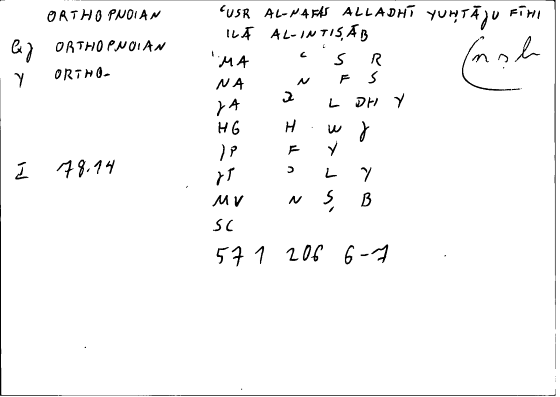 ORTHOPNOIAN ʿUSR AL-NAFAS ALLADHĪ YUḤTĀJU FĪHI
ILĀ AL-INTIṢĀB
(nṣb
GJ ORTHOPNOIAN
Y ORTHO-
MA ʿ S R
NA N F S
JA ʾ L DH Y
HG Ḥ W J
JP F Y
JT ʾ L Y
MV N Ṣ B
SC
I 78.14
571 206 6-7